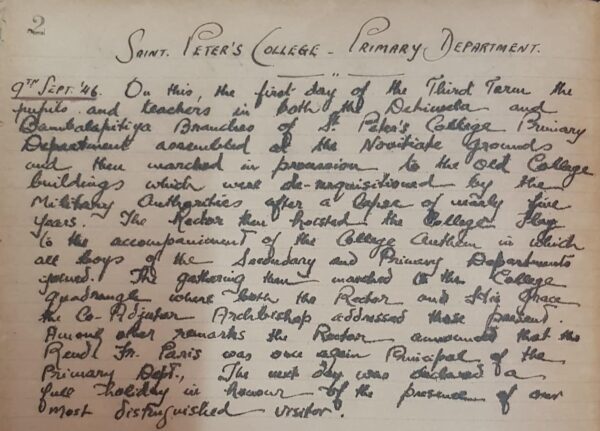 2
SAINT. PETER'S COLLEGE - PRIMARY DEPARTMENT.
9TH SEPT. '46. On this, the first day of the Third Term the
pupils and teachers in both the Dehiwela and
Bambalapitiya Branches of St. Peter's College Primary
Department assembled at the Novitiate grounds
and then marched in procession to the Old College
buildings which were de-requisitioned by the
Military Authorities after a lapse of nearly five
years. The Rector then hoisted the College Flag
to the accompaniment of the College Anthem in which
all boys of the Secondary and Primary Departments
joined. The gathering then marched to the College
quadrangle where both the Rector and His Grace
the Co-Adjutor Archbishop addressed those present.
Among other remarks the Rector announced that the
Revd. Fr. Paris was once again Principal of the
Primary Dept., The next day was declared a
full holiday in honour of the presence of our
most distinguished visitor.